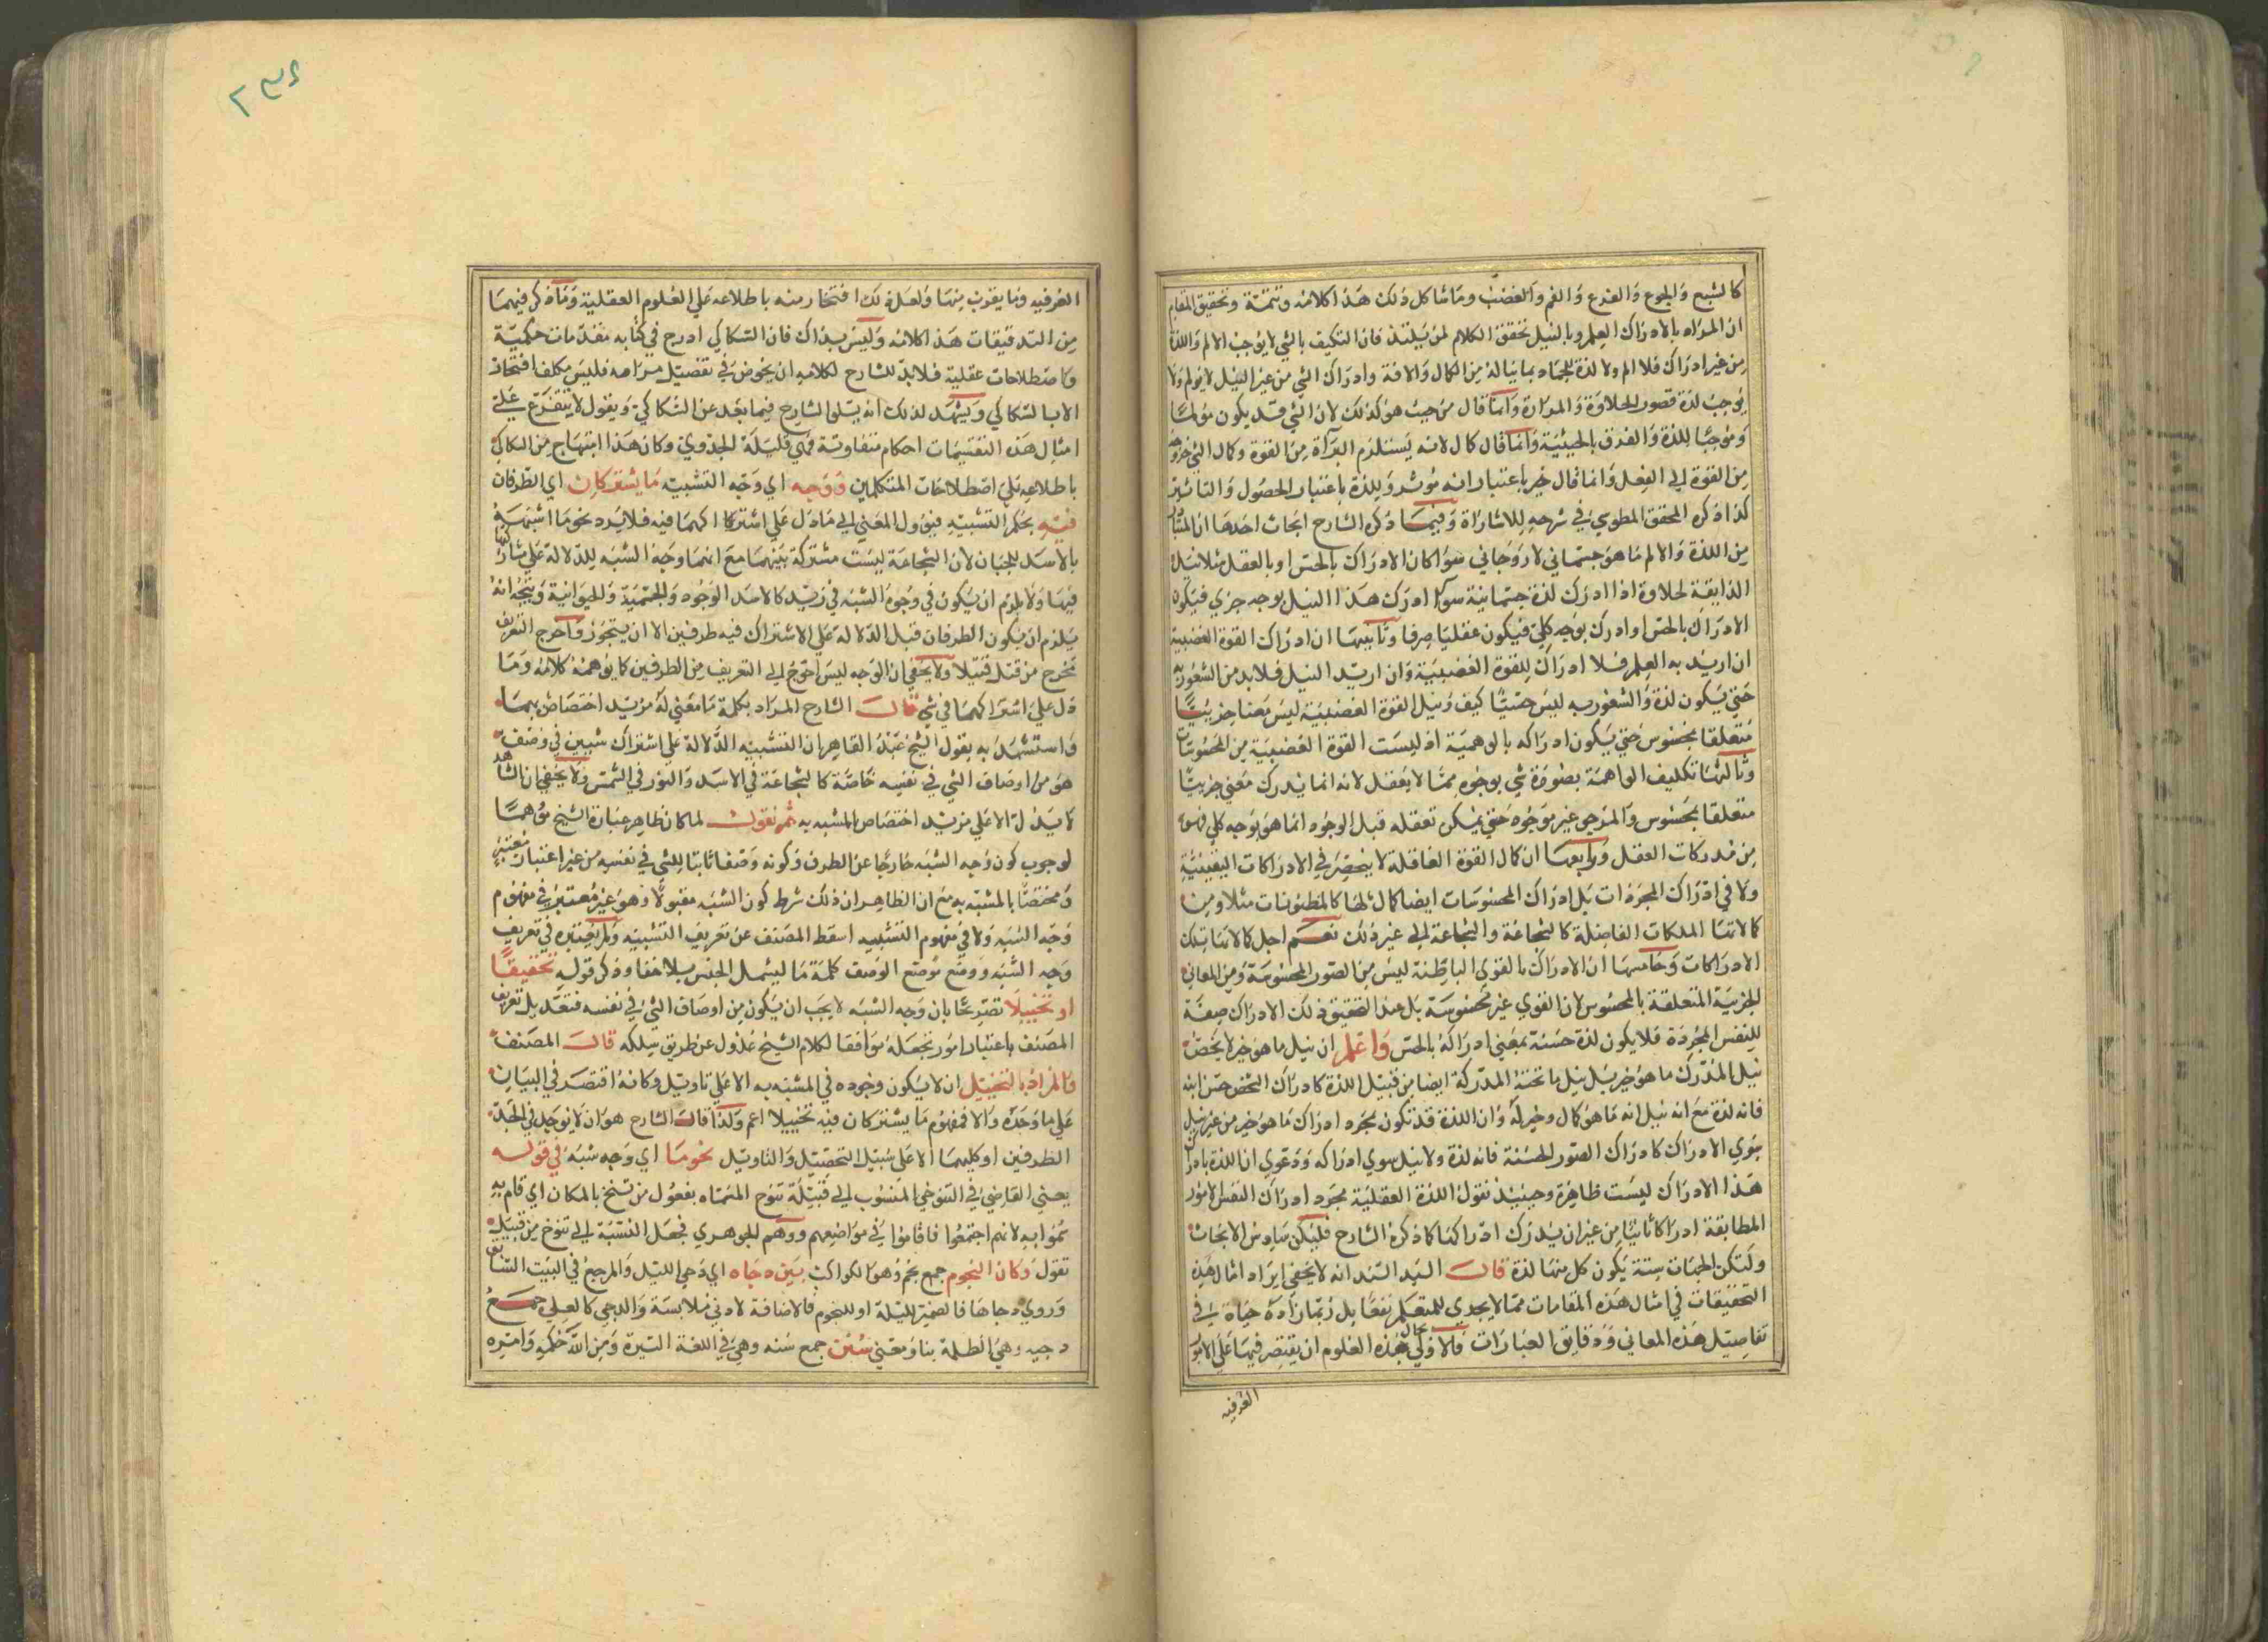 كالشبع والجوع والفزع والغم والغضب وما شاكل ذلك هذا كلامه وتتمة وتحقيق المقام
ان المراد بالادراك العلم وبالنيل تحقق الكلام لمن يلتذ فان التكيف بالشي لا يوجب الالم واللذة
من غير ادراك فلا الم ولا لذة للجماد بما يناله من الكمال والافة وادراك الشي من غير النيل لا يولم ولا
يوجب لذة قصور الحلاوة والمرارة وانما قال من حيث هو كذلك لان الشي قد يكون مولما
وموجبا للذة والفرق بالحيثية وانما قال كمال لانه يستلزم البراة من القوة وكمال الشي خروجه
من القوة الي الفعل وانما قال خير باعتبار انه موثر ويلذة باعتبار الحصول والتاثير
كذا ذكره المحقق الطوسي في شرحه للاشاراة وفيما ذكره الشارح ابحاث احدها ان المتبادر
من اللذة والالم ما هو جسماني لا روحاني سوا كان الادراك بالحس او بالعقل مثلا نيل
الذايقة لحلاوة اذا ادرك لذة جسمانية سوا ادرك هذا النيل بوجه جزي فيكون
الادراك بالحس او ادرك بوجه كلي فيكون عقليا صرفا وثانيها ان ادراك القوة الغضبية
ان اريد به العلم فلا ادراك للقوة الغضبية وان اريد النيل فلا بد من الشعور به
حتي يكون لذة والشعور به ليس حسيا كيف ونيل القوة الغضبية ليس معنا جزييا
متعلقا بمحسوس حتي يكون ادراكه بالوهمية اذ ليست القوة الغضبية من المحسوسات
وثالثها تكليف الواهمة بصورة شي بوجوه مما لا يعقل لانه انما يدرك معني جزييا
متعلقا بمحسوس والمرجي غير موجود حتي يمكن تعقله قبل الوجود انما هو بوجه كلي فهو
من مدركات العقل ورابعها ان كمال القوة العاقلة لا ينحصر في الادراكات اليقينية
ولا في ادراك المجردات بل ادراك المحسوسات ايضا كمال لها كالمظنونات مثلا ومن
كمالاتنا الملكات الفاضلة كالشجاعة والشجاعة الي غير ذلك نعم اجل كمالاتنا تلك
الادراكات وخامسها ان الادراك بالقوي الباطنة ليس من الصور المحسوسة ومن المعاني
الجزيية المتعلقة بالمحسوس لان القوي غير محسوسة بل عند التحقيق ذلك الادراك صفة
للنفس المجردة فلا يكون لذة حسنة بمعني ادراكه بالحس واعلم ان نيل ما هو خير لا يخص
نيل المدرك ما هو خير بل نيل ما تحته المدركة ايضا من قبيل اللذة كادراك الشخص حسن ابنه
فانه لذة مع انه نيل انه ما هو كمال وخير له وان اللذة قد تكون بمجرد ادراك ما هو خير من غير نيل
سوي الادراك كادراك الصور الحسنة فانه لذة ولا نيل سوي ادراكه ودعوي ان اللذة بادراك
هذا الادراك ليست ظاهرة وحينيذ نقول اللذة العقلية مجرد ادراك النفس لامور
المطابقة ادراكا ثانيا من غير ان يدرك ادراكها كما ذكره الشارح فليكن سادس الابحاث
ولتكن الجهات ستة يكون كل منها لذة قال السيد السند انه لا يخفي ايراد امثال هذه
التحقيقات في امثال هذه المقامات مما لا يجدي للمتعلم نفعا بل ربما زاده حياة في
تفاصيل هذه المعاني ودقايق العبارات فالاولي بحال هذه العلوم ان يقتصر فيها علي الامور
العرفيه
العرفيه وما يقرب منها ولعل ذلك افتخار منه باطلاعه علي العلوم العقلية وما ذكر فيهما
من التدقيقات هذا كلامه وليس بذاك فان السكاكي ادرج في كتابه مقدمات حكمية
واصطلاحات عقلية فلا بد للشارح لكلامه ان يخوض في تفصيل مرامه فليس مكلف افتخار
الا بالسكاكي ويشهد لذلك انه يتلو الشارح فيما بعد عن السكاكي ويقول لا يتفرع علي
امثال هذه التقسيمات احكام متفاوتة فهي قليلة الجدوي وكان هذا ابتهاج من السكاكي
باطلاعه علي اصطلاحات المتكلمين ووجه اي وجه التشبيه ما يشتركان اي الطرفان
فيه بحكم التشبيه فيؤول المعني الي ما دل علي اشتراكهما فيه فلا يرد نحو ما اشبهه
بالاسد للجبان لان الشجاعة ليست مشتركة بينهما مع انها وجه الشبه للدلالة علي مشاركتهما
فيها ولا يلزم ان يكون في وجوه الشبه في زيد كالاسد الوجود والجسمية والحيوانية ويتجه انه
يلزم ان يكون الطرفان قبل الدلالة علي الاشتراك فيه طرفين الا ان يتجوز واحوج التعريف
نحرج من قتل قتيلا ولا يخفي ان الوجه ليس احوج الي التعريف من الطرفين كما يوهمه كلامه وما
دل علي اشتراكهما في شي قال الشارح المراد بكلمة ما معني له مزيد اختصاص بهما
واستشهد به بقول الشيخ عبد القاهر ان التشبيه الدلالة علي اشتراك شيين في وصف
هو من اوصاف الشي في نفسه خاصة كالشجاعة في الاسد والنور في الشمس ولا يخفي ان الشاهد
لا يدل الا علي مزيد اختصاص المشبه به ثم نقول لما كان ظاهر عبارة الشيخ موهما
لوجوب كون وجه الشبه خارجا عن الطرف وكونه وصفا ثابتا للشي في نفسه من غير اعتبار معتبر
ومختصا بالمشبه به مع ان الظاهر ان ذلك شرط كون الشبه مقبولا وهو غير معتبر في مفهوم
وجه الشبه ولا في مفهوم التشبيه اسقط المصنف عن تعريف التشبيه ولم يعتبره في تعريف
وجه الشبه ووضع موضع الوصف كلمة ما ليشمل الجنس بلا خفا وذكر قوله تحقيقا
او تخييلا تصريحا بان وجه الشبه لا يجب ان يكون من اوصاف الشي في نفسه فتعديل تعريف
المصنف باعتبار امور تجعله موافقا لكلام الشيخ عدول عن طريق سلكه قال المصنف
والمراد بالتخييل ان لا يكون وجوده في المشبه به الا علي تاويل وكانه اقتصر في البيان
علي ما وجده والا فمفهوم ما يشتركان فيه تخييلا اعم ولذا قال الشارح هو ان لا يوجد في احد
الطرفين او كليهما الا علي سبيل التخييل والتاويل نحو ما اي وجه شبه في قوله
يعني القاضي في التنوخي المنسوب الي قبيلة تنوخ المسماه بفعول من تنخ بالمكان اي قام به
سموا به لانهم اجتمعوا فاقاموا في مواضعهم ووهم الجوهري فجعل النسبة الي تنوخ من قبيل
تقول وكان النجوم جمع نجم وهو الكواكب بين دجاه اي دجي الليل والمرجع في البيت السابق
وروي دجاها فالضمير لليلة او للنجوم فالاضافة لادني ملابسة والدجي كالعلي جمع
دجيه وهي الظلمة بناومعني سنن جمع سنه وهي في اللغة السيرة ومن الله حكمه وامره